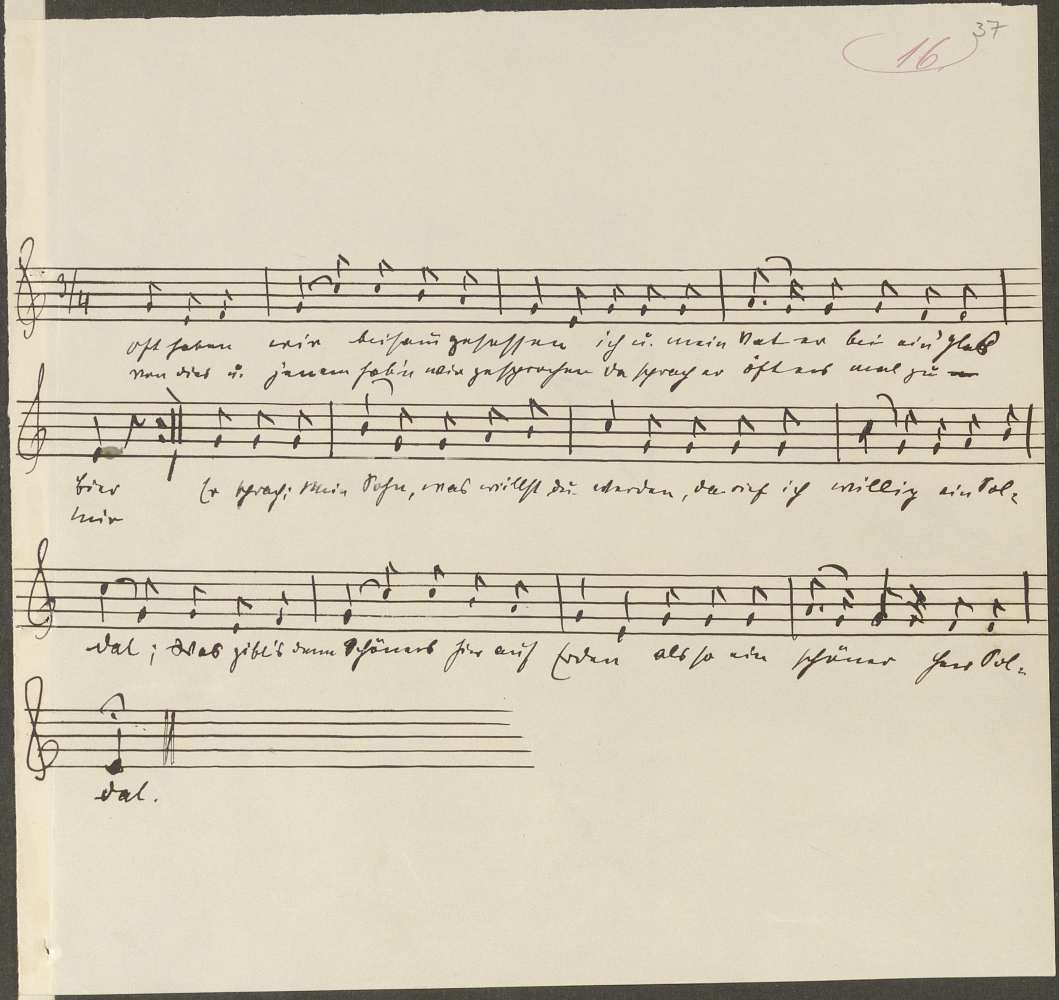 37
16
3/4
oft haben wir beisam̄ gesessen ich u. mein Vater bei ein' Glas
von dies u. jenem hab'n wir gesprochen da sprach er öfters mal zu
bier Er sprach: Mein Sohn, was willst du werden, da rief ich willig ein Sol-
mir
dat; Was gibt's denn Schöners hier auf Erden als so ein schöner Herr Sol-
dat.